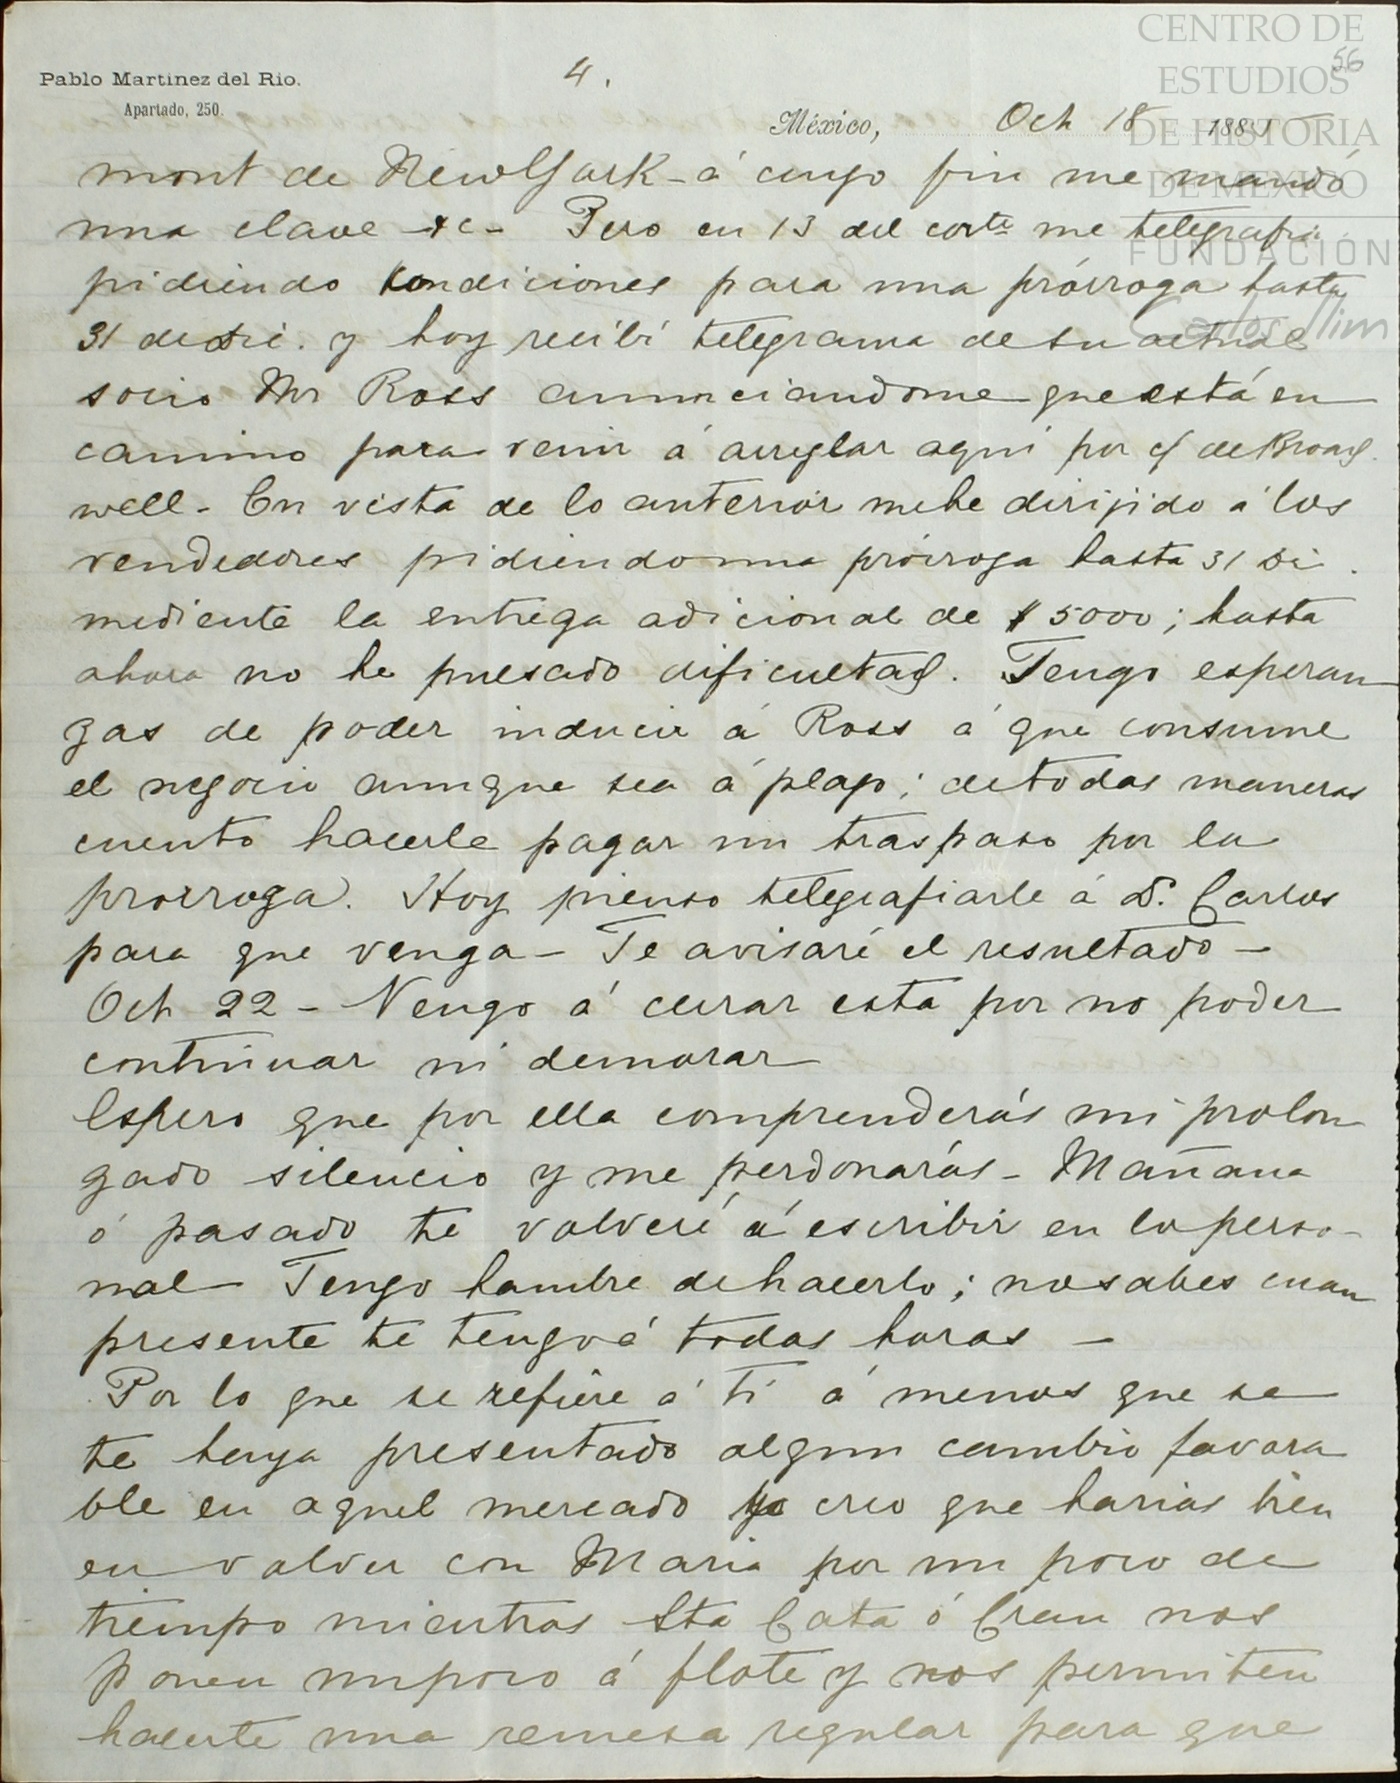 CENTRO DE
ESTUDIOS
DE HISTORIA
DE MÉXICO
FUNDACIÓN
Carlos Slim
56
Pablo Martinez del Rio.
Apartado, 250.
4.
México, Oct 18 188
mont de New York - á cuyo fin me mandó
una clave &c - Pero en 13 del corte me telegrafia
pidiendo condiciones para una prórroga hasta
31 de Dic. y hoy recibí telegrama de su actual
socio Mr Ross anunciandome que está en
camino para venir á arreglar aquí por c/ de Broad
well - En vista de lo anterior me he dirijido á los
vendedores pidiendo una prórroga hasta 31 Di.
mediente la entrega adicional de $5000; hasta
ahora no he pulsado dificultad. Tengo esperan
zas de poder inducir á Ross á que consume
el negocio aunque sea á plazo; de todas maneras
cuento hacerle pagar un traspaso por la
prorroga. Hoy pienso telegrafiarle á D. Carlos
para que venga - Te avisaré el resultado -
Oct 22 - Vengo á cerrar esta por no poder
continuar ni demorar
Espero que por ella comprenderás mi prolon
gado silencio y me perdonarás - Mañana
ó pasado te volveré á escribir en lo perso-
nal - Tengo hambre de hacerlo; no sabes cuan
presente te tengo á todas horas -
Por lo que se refiere á tí á menos que se
te haya presentado algun cambio favora
ble en aquel mercado yo creo que harias bien
en volver con Maria por un poco de
tiempo mientras Sta Cata ó Cran nos
ponen un poco á flote y nos permiten
hacerte una remesa regular para que